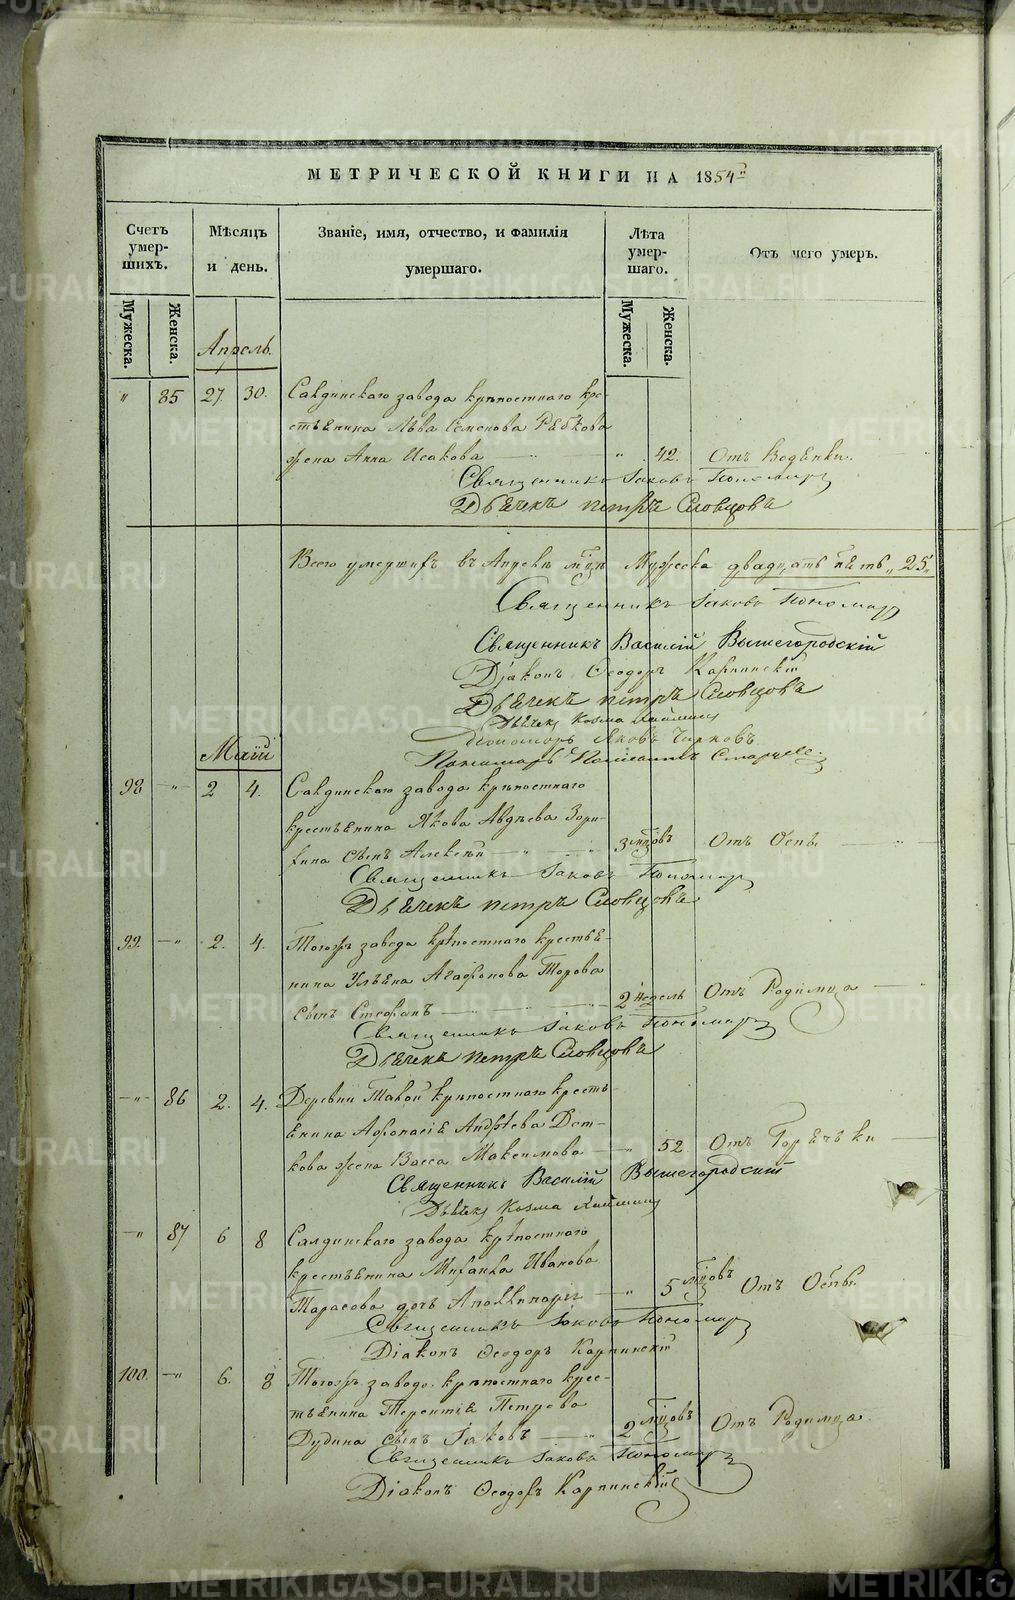 МЕТРИЧЕСКОЙ КНИГИ НА 1854
Счетъ умершихъ. Мѣсяцъ и день. Званіе, имя, отчество, и фамилія умершаго. Лѣта умершаго. Отъ чего умеръ.
Мужеска. Женска. Мужеска. Женска.
Апрель.
" 85 27. 30. Салдинскаго завода крѣпостнаго кре-
стьянина Льва Семенова Рябкова
жена Анна Исакова " 42. Отъ Водянки.
Священникъ Іаковъ Пономар
Дьячекъ петръ Словцовъ
Всего умершихъ въ Апрелѣ мцѣ Мужеска двадцать пять "25"
Священникъ Іаковъ Пономар
Священникъ Василій Вышегородскій
Діаконъ Ѳеодоръ Карпинскій
Дьячекъ петръ Словцовъ
Дьячек Козма
Пономарь Яковъ Чирковъ
Пономарь
Маій
98 " 2 4. Салдинскаго завода крѣпостнаго
крестьянина Якова Авдѣева Зори-
хина сынъ Алексѣй 3 мцовъ Отъ Оспы.
Священникъ Іаковъ Пономар
Дьячекъ петръ Словцовъ
99. " 2. 4. Тогожъ завода крѣпостнаго крестья-
нина Ульяна Агафонова Торова
сынъ Стефанъ 2 недель Отъ Родимца
Священникъ Іаковъ Пономар
Дьячекъ петръ Словцовъ
" 86 2. 4. Деревни крѣпостнаго кресть-
янина Афонасія Андрѣева
кова жена Васса Максимова 52. Отъ Горячки
Священникъ Василій Вышегородскій
Дьячек Козма
" 87 6 8 Салдинскаго завода крѣпостнаго
крестьянина Михаила Иванова
Тарасова дочь Аполлинарія " 5 мцовъ Отъ Оспы.
Священникъ Іаковъ Пономар
Діаконъ Ѳеодоръ Карпинскій
100. " 6. 8 Тогожъ завода крѣпостнаго крес-
тьянина Терентія Петрова
Дудина сынъ Іаковъ " 2 мцовъ Отъ Родимца.
Священникъ Іаковъ Пономар
Діаконъ Ѳеодоръ Карпинскій
METRIKI.GASO-URAL.RU